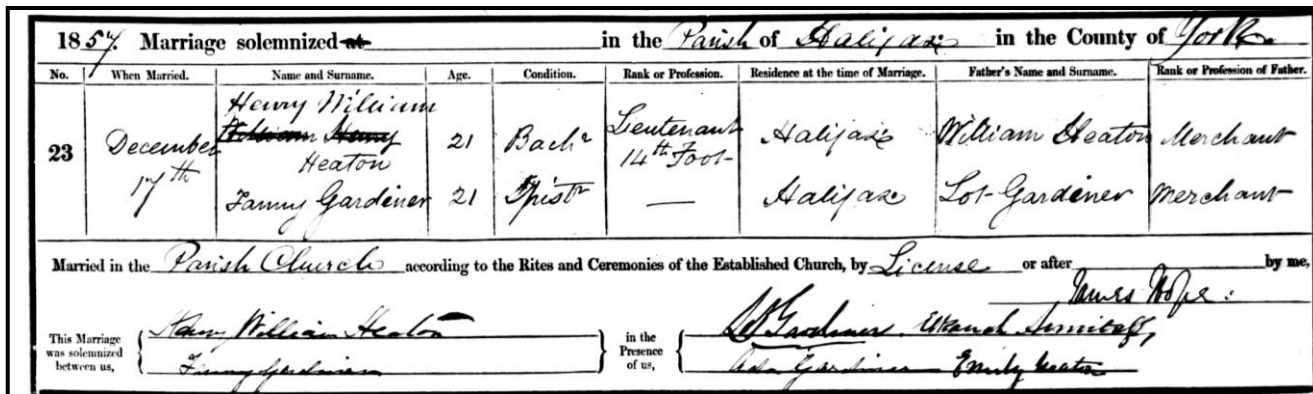 1857. Marriage solemnized at in the Parish of Halifax in the County of York
No. When Married. Name and Surname. Age. Condition. Rank or Profession. Residence at the time of Marriage. Father's Name and Surname. Rank or Profession of Father.
23 December 17th Henry William William Henry Heaton 21 Bachr Lieutenant 14th Foot Halifax William Heaton Merchant
Fanny Gardiner 21 Spistr — Halifax Lot Gardiner Merchant
Married in the Parish Church according to the Rites and Ceremonies of the Established Church, by License or after by me,
James Hope.
This Marriage was solemnized between us, Henry William Heaton in the Presence of us, Gardiner
Fanny Gardiner Ada Gardiner Emily Heaton